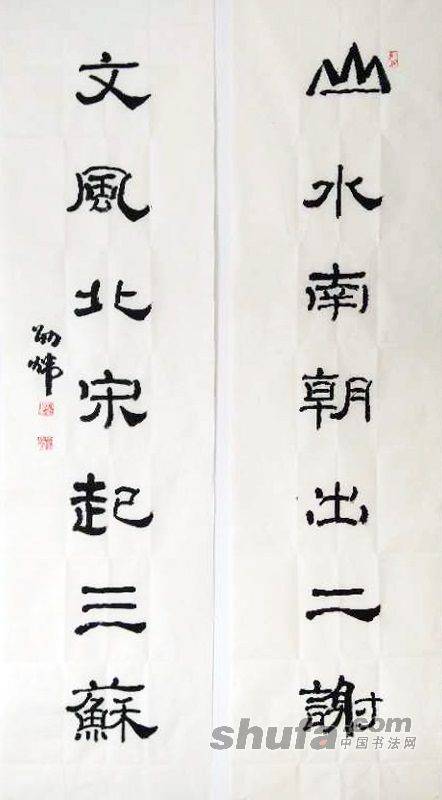 山水南朝出二謝
文風北宋起三蘇
shufa.com
中国书法网